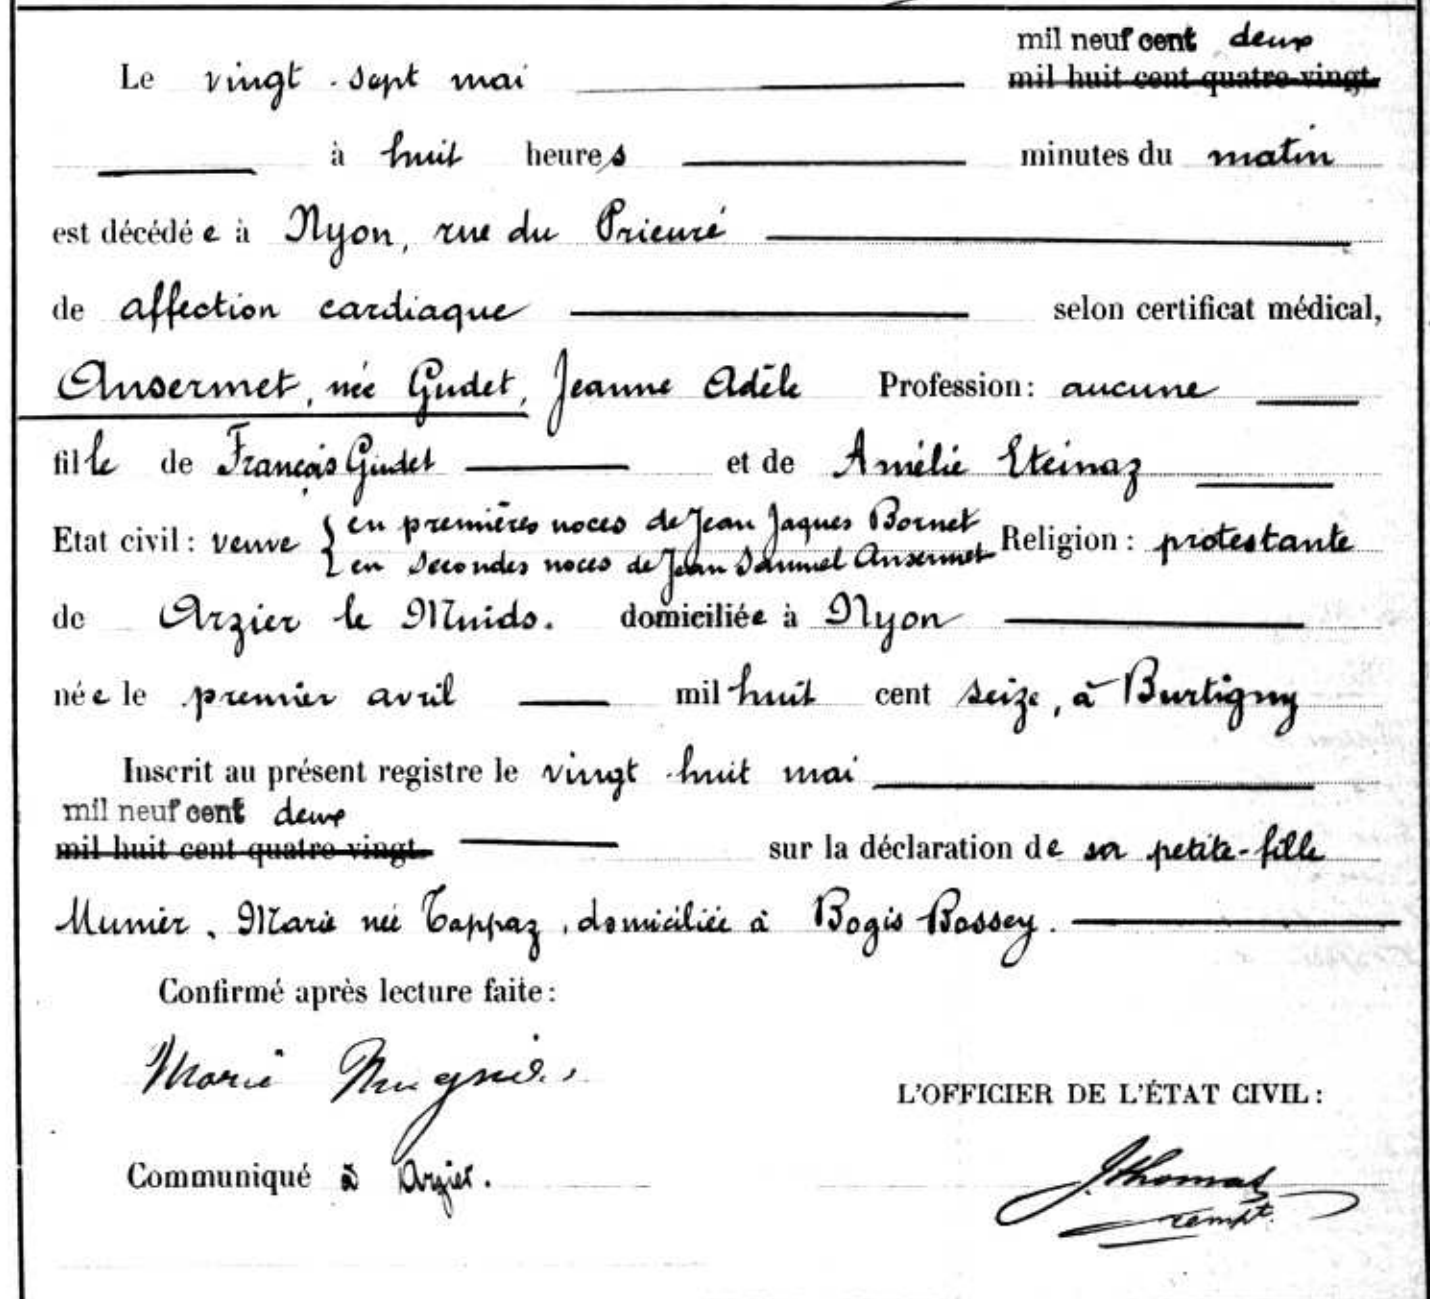 mil neuf cent deux
Le vingt-sept mai mil huit cent quatre-vingt
à huit heures minutes du matin
est décédée à Nyon, rue du Prieuré
de affection cardiaque selon certificat médical,
Ansermet, née Gudet, Jeanne Adèle Profession: aucune
fille de François Gudet et de Amélie Eteinaz
Etat civil: veuve { en premières noces de Jean Jaques Bornet Religion: protestante
en secondes noces de Jean Samuel Ansermet
de Arzier le Muids. domiciliée à Nyon
née le premier avril mil huit cent seize, à Burtigny
Inscrit au présent registre le vingt-huit mai
mil neuf cent deux
mil huit cent quatre-vingt sur la déclaration de sa petite-fille
Munier, Marie née Tappaz, domiciliée à Bogis Bossey.
Confirmé après lecture faite:
Marie
L'OFFICIER DE L'ÉTAT CIVIL:
Communiqué à Arzier.
J. Thomas
rempt.